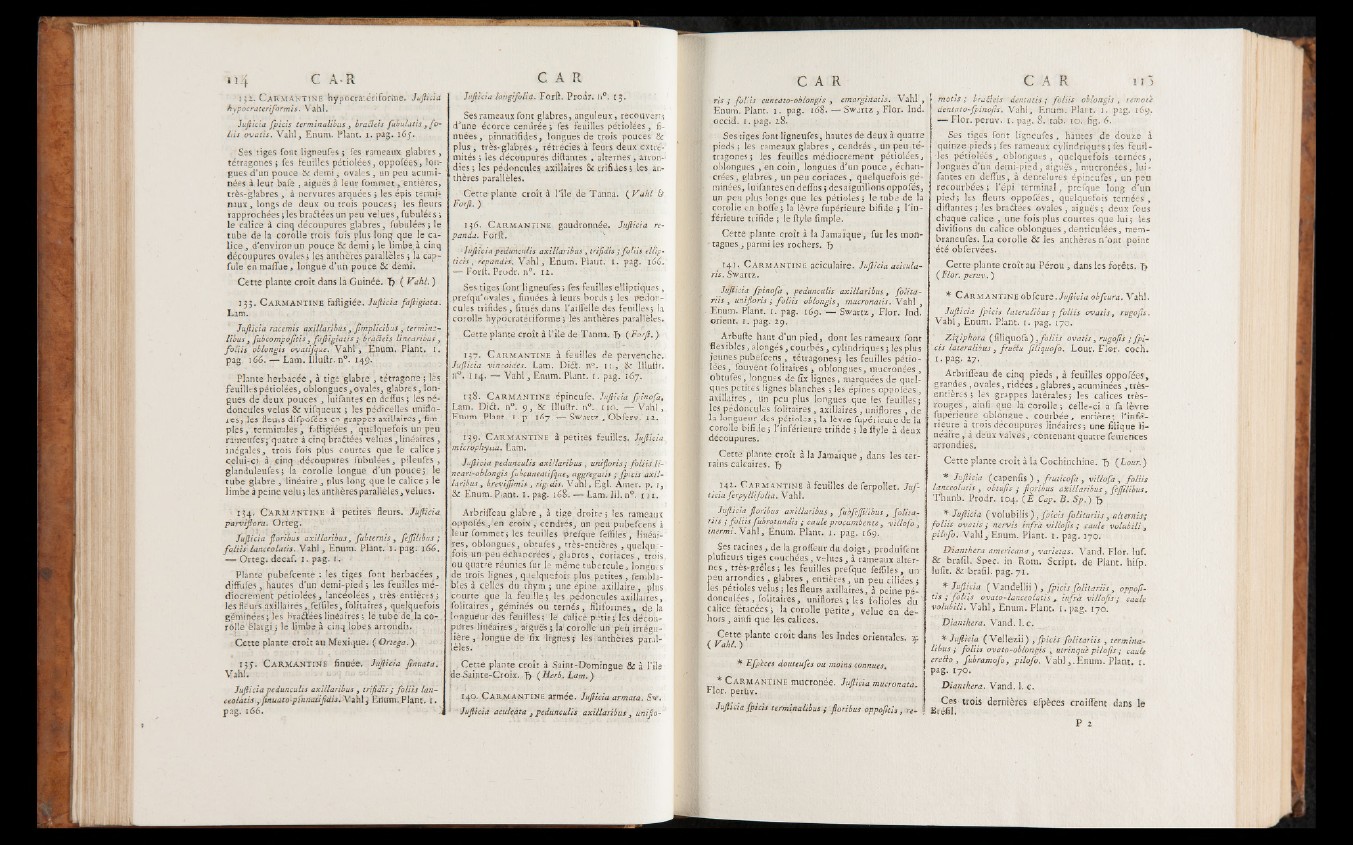 114 C A R
C A R
132. CARMANTINE hypocratériforme. Justicia
hypocrateriformis. Vahl.
Justicia spicis terminalibus, bracteis subulatis, fo-
liis ovatis. Vahl, Enum. Plant. 1. pag. 165.
Ses tiges sont ligneuses; ses rameaux glabres,
tétragones; ses feuilles pétiolées, opposées, lon-
gues d'un pouce & demi, ovales, un peu acumi-
nées à leur base, aiguës à leur sommet, entières,
très-glabres, à nervures arquées; les épis termi-
naux, longs de deux ou trois pouces; les fleurs
rapprochées; les bractées un peu velues, subulées;
le calice à cinq découpures glabres, subulées; le
tube de la corolle trois fois plus long que le ca-
lice, d'environ un pouce & demi; le limbe à cinq
découpures ovales; les anthères parallèles; la cap-
sule en massue, longue d'un pouce & demi.
Cette plante croît dans la Guinée. ♄ (Vahl.)
133. CARMANTINE fastigiée. Justicia fastigiata.
Lam.
Justicia racemis axillaribus, simplicibus, termina-
libus, subcompositis, fastigiatis; bracteis linearibus,
foliis oblongis ovatisque. Vahl, Enum. Plant. 1.
pag. 166. — Lam. Illustr. n°. 149.
Plante herbacée, à tige glabre, tétragone; les
feuilles pétiolées, oblongues, ovales, glabres, lon-
gues de deux pouces, luisantes en dessus; les pé-
doncules velus & visqueux; les pédicelles uniflo-
res; les fleurs disposées en grappes axillaires, sim-
ples, terminales, fastigiées, quelquefois un peu
rameuses; quatre à cinq bractées velues, linéaires,
inégales, trois fois plus courtes que le calice;
celui-ci à cinq découpures subulées, pileuses,
glanduleuses; la corolle longue d'un pouce; le
tube glabre, linéaire, plus long que le calice; le
limbe à peine velu; les anthères parallèles, velues.
134. CARMANTINE à petites fleurs. Justicia
parviflora. Orteg.
Justicia floribus axillaribus, subternis, sessilibus;
foliis lanceolatis. Vahl, Enum. Plant. 1. pag. 166.
— Orteg. decaf. 1. pag. 1.
Plante pubescente: les tiges sont herbacées,
diffuses, hautes d'un demi-pied; les feuilles mé-
diocrement pétiolées, lancéolées, très entières;
les fleurs axillaires, sessiles, solitaires, quelquefois
géminées; les bractées linéaires; le tube de la co-
rolle élargi; le limbe à cinq lobes arrondis.
Cette plante croît au Mexique. (Ortega.)
135. CARMANTINE sinuée. Justicia sinuata.
Vahl.
Justicia pedunculis axillaribus, trifidis; foliis lan-
ceolatis, sinuato-pinnatifidis. Vahl, Enum. Plant. 1.
pag. 166.
Justicia longifolia. Forst. Prodr. n°. 13.
Ses rameaux sont glabres, anguleux, recouverts
d'une écorce cendrée; ses feuilles pétiolées, si-
nuées, pinnatifides, longues de trois pouces &
plus, très-glabres, rétrécies à leurs deux extré-
mités; les découpures distantes, alternes, arron-
dies; les pédoncules axillaires & trifides; les an-
thères parallèles.
Cette plante croît à l'île de Tanna. (Vahl &
Forst.)
136. CARMANTINE gaudronnée. Justicia re-
panda. Forst.
Justicia pedunculis axillaribus, trifidis; foliis ellip-
ticis, repandis. Vahl, Enum. Plant. 1. pag. 166.
— Forst. Prodr. n°. 12.
Ses tiges sont ligneuses; ses feuilles elliptiques,
presqu'ovales, sinuées à leurs bords; les pédon-
cules trifides, situés dans l'aisselle des feuilles; la
corolle hypocratériforme; les anthères parallèles.
Cette plante croît à l'île de Tanna. ♄ (Forst.)
137. CARMANTINE à feuilles de pervenche.
Justicia vincoides. Lam. Dict. n°. 11, & Illustr.
n°. 114. — Vahl, Enum. Plant. 1. pag. 167.
138. CARMANTINE épineuse. Justicia spinosa.
Lam. Dict. n°. 9, & Illustr. n°. 110. — Vahl,
Enum. Plant. 1. p. 167. — Swartz, Observ. 12.
139. CARMANTINE à petites feuilles. Justicia
microphylla. Lam.
Justicia pedunculis axillaribus, unifloris; foliis li-
neari-oblongis subcuneatisque, aggregatis; spicis axil-
laribus, brevissimis, rigidis. Vahl, Egl. Amer. p. 1,
& Enum. Plant. 1. pag. 168. — Lam. Ill. n°. 121.
Arbrisseau glabre, à tige droite; les rameaux
opposés, en croix, cendrés, un peu pubescens à
leur sommet; les feuilles presque sessiles, linéai-
res, oblongues, obtuses, très-entières, quelque-
fois un peu échancrées, glabres, coriaces, trois
ou quatre réunies sur le même tubercule, longues
de trois lignes, quelquefois plus petites, sembla-
bles à celles du thym; une épine axillaire, plus
courte que la feuille; les pédoncules axillaires,
solitaires, géminés ou ternés, filiformes, de la
longueur des feuilles; le calice petit; les décou-
pures linéaires, aiguës; la corolle un peu irrégu-
lière, longue de six lignes; les anthères paral-
lèles.
Cette plante croît à Saint-Domingue & à l'île
de Sainte-Croix. ♄ (Herb. Lam.)
140. CARMANTINE armée. Justicia armata. Sw.
Justicia aculeata, pedunculis axillaribus, unifo-
C A R
C A R 115
ris; foliis cuneato-oblongis, emarginatis. Vahl,
Enum. Plant. 1. pag. 168. — Swartz, Flor. Ind.
occid. 1. pag. 28.
Ses tiges sont ligneuses, hautes de deux à quatre
pieds; les rameaux glabres, cendrés, un peu té-
tragones; les feuilles médiocrement pétiolées,
oblongues, en coin, longues d'un pouce, échan-
crées, glabres, un peu coriaces, quelquefois gé-
minées, luisantes en dessus; des aiguillons opposés,
un peu plus longs que les pétioles; le tube de la
corolle en bosse; la lèvre supérieure bifide; l'in-
férieure trifide; le style simple.
Cette plante croît à la Jamaïque, sur les mon-
tagnes, parmi les rochers. ♄
141. CARMANTINE aciculaire. Justicia acicula-
ris. Swartz.
Justicia spinosa, pedunculis axillaribus, solita-
riis, unifloris; foliis oblongis, mucronatis. Vahl,
Enum. Plant. 1. pag. 169. — Swartz, Flor. Ind.
orient. 1. pag. 29.
Arbuste haut d'un pied, dont les rameaux sont
flexibles, alongés, courbés, cylindriques; les plus
jeunes pubescens, tétragones; les feuilles pétio-
lées, souvent solitaires, oblongues, mucronées,
obtuses, longues de six lignes, marquées de quel-
ques petites lignes blanches; les épines opposées,
axillaires, un peu plus longues que les feuilles;
les pédoncules solitaires, axillaires, uniflores, de
la longueur des pétioles; la lèvre supérieure de la
corolle bifide; l'inférieure trifide; le style à deux
découpures.
Cette plante croît à la Jamaïque, dans les ter-
rains calcaires. ♄
142. CARMANTINE à feuilles de serpollet. Jus-
ticia serpyllifolia. Vahl.
Justicia floribus axillaribus, subsessilibus, solita-
riis; foliis subrotundis; caule procumbente, villoso,
inermi. Vahl, Enum. Plant. 1. pag. 169.
Ses racines, de la grosseur du doigt, produisent
plusieurs tiges couchées, velues, à rameaux alter-
nes, très-grêles; les feuilles presque sessiles, un
peu arrondies, glabres, entières, un peu ciliées;
les pétioles velus; les fleurs axillaires, à peine pé-
donculées, solitaires, uniflores; les folioles du
calice sétacées; la corolle petite, velue en de-
hors, ainsi que les calices.
Cette plante croît dans les Indes orientales. ♃
(Vahl.)
* Espèces douteuses ou moins connues.
* CARMANTINE mucronée. Justicia mucronata.
Flor. peruv.
Justicia spicis terminalibus; floribus oppositis, re-
motis; bracteis dentatis; foliis oblongis, remotè
dentato-spinosis. Vahl, Enum. Plant. 1. pag. 169.
— Flor. peruv. 1. pag. 8. tab. 10. fig. 6.
Ses tiges sont ligneuses, hautes de douze à
quinze pieds; ses rameaux cylindriques; ses feuil-
les pétiolées, oblongues, quelquefois ternées,
longues d'un demi-pied, aiguës, mucronées, lui-
santes en dessus, à dentelures épineuses, un peu
recourbées; l'épi terminal, presque long d'un
pied; les fleurs opposées, quelquefois ternées,
distantes; les bractées ovales, aiguës; deux sous
chaque calice, une fois plus courtes que lui; les
divisions du calice oblongues, denticulées, mem-
braneuses. La corolle & les anthères n'ont point
été observées.
Cette plante croît au Pérou, dans les forêts. ♄
(Flor. peruv.)
* CARMANTINE obscure. Justicia obscura. Vahl.
Justicia spicis lateralibus; foliis ovatis, rugosis.
Vahl, Enum. Plant. 1. pag. 170.
Ziziphora (siliquosa), foliis ovatis, rugosis; spi-
cis lateralibus; fructu siliquoso. Lour. Flor. coch.
1. pag. 27.
Arbrisseau de cinq pieds, à feuilles opposées,
grandes, ovales, ridées, glabres, acuminées, très-
entières; les grappes latérales; les calices très-
rouges, ainsi que la corolle; celle-ci à sa lèvre
supérieure oblongue, courbée, entière; l'infé-
rieure à trois découpures linéaires; une silique li-
néaire, à deux valves, contenant quatre semences
arrondies.
Cette plante croît à la Cochinchine. ♄ (Lour.)
* Justicia (capensis), fruticosa, villosa, foliis
lanceolatis, obtusis; floribus axillaribus, sessilibus.
Thunb. Prodr. 104. (È Cap. B. Sp.) ♄
* Justicia (volubilis), spicis solitariis, alternis;
foliis ovatis; nervis infrà villosis; caule volubili,
piloso. Vahl, Enum. Plant. 1. pag. 170.
Dianthera americana, varietas. Vand. Flor. lus.
& brasil. Spec. in Rom. Script. de Plant. hisp.
lusit. & brasil. pag. 71.
* Justicia (Vandellii), spicis solitariis, opposi-
tis; foliis ovato-lanceolatis, infrà villosis; caule
volubili. Vahl, Enum. Plant. 1. pag. 170.
Dianthera. Vand. l. c.
* Justicia (Vellozii), spicis solitariis, termina-
libus; foliis ovato-oblongis, utrinquè pilosis; caule
erecto, subramoso, piloso. Vahl, Enum. Plant. 1.
pag. 170.
Dianthera. Vand. l. c.
Ces trois dernières espèces croissent dans le
Brésil.
P 2